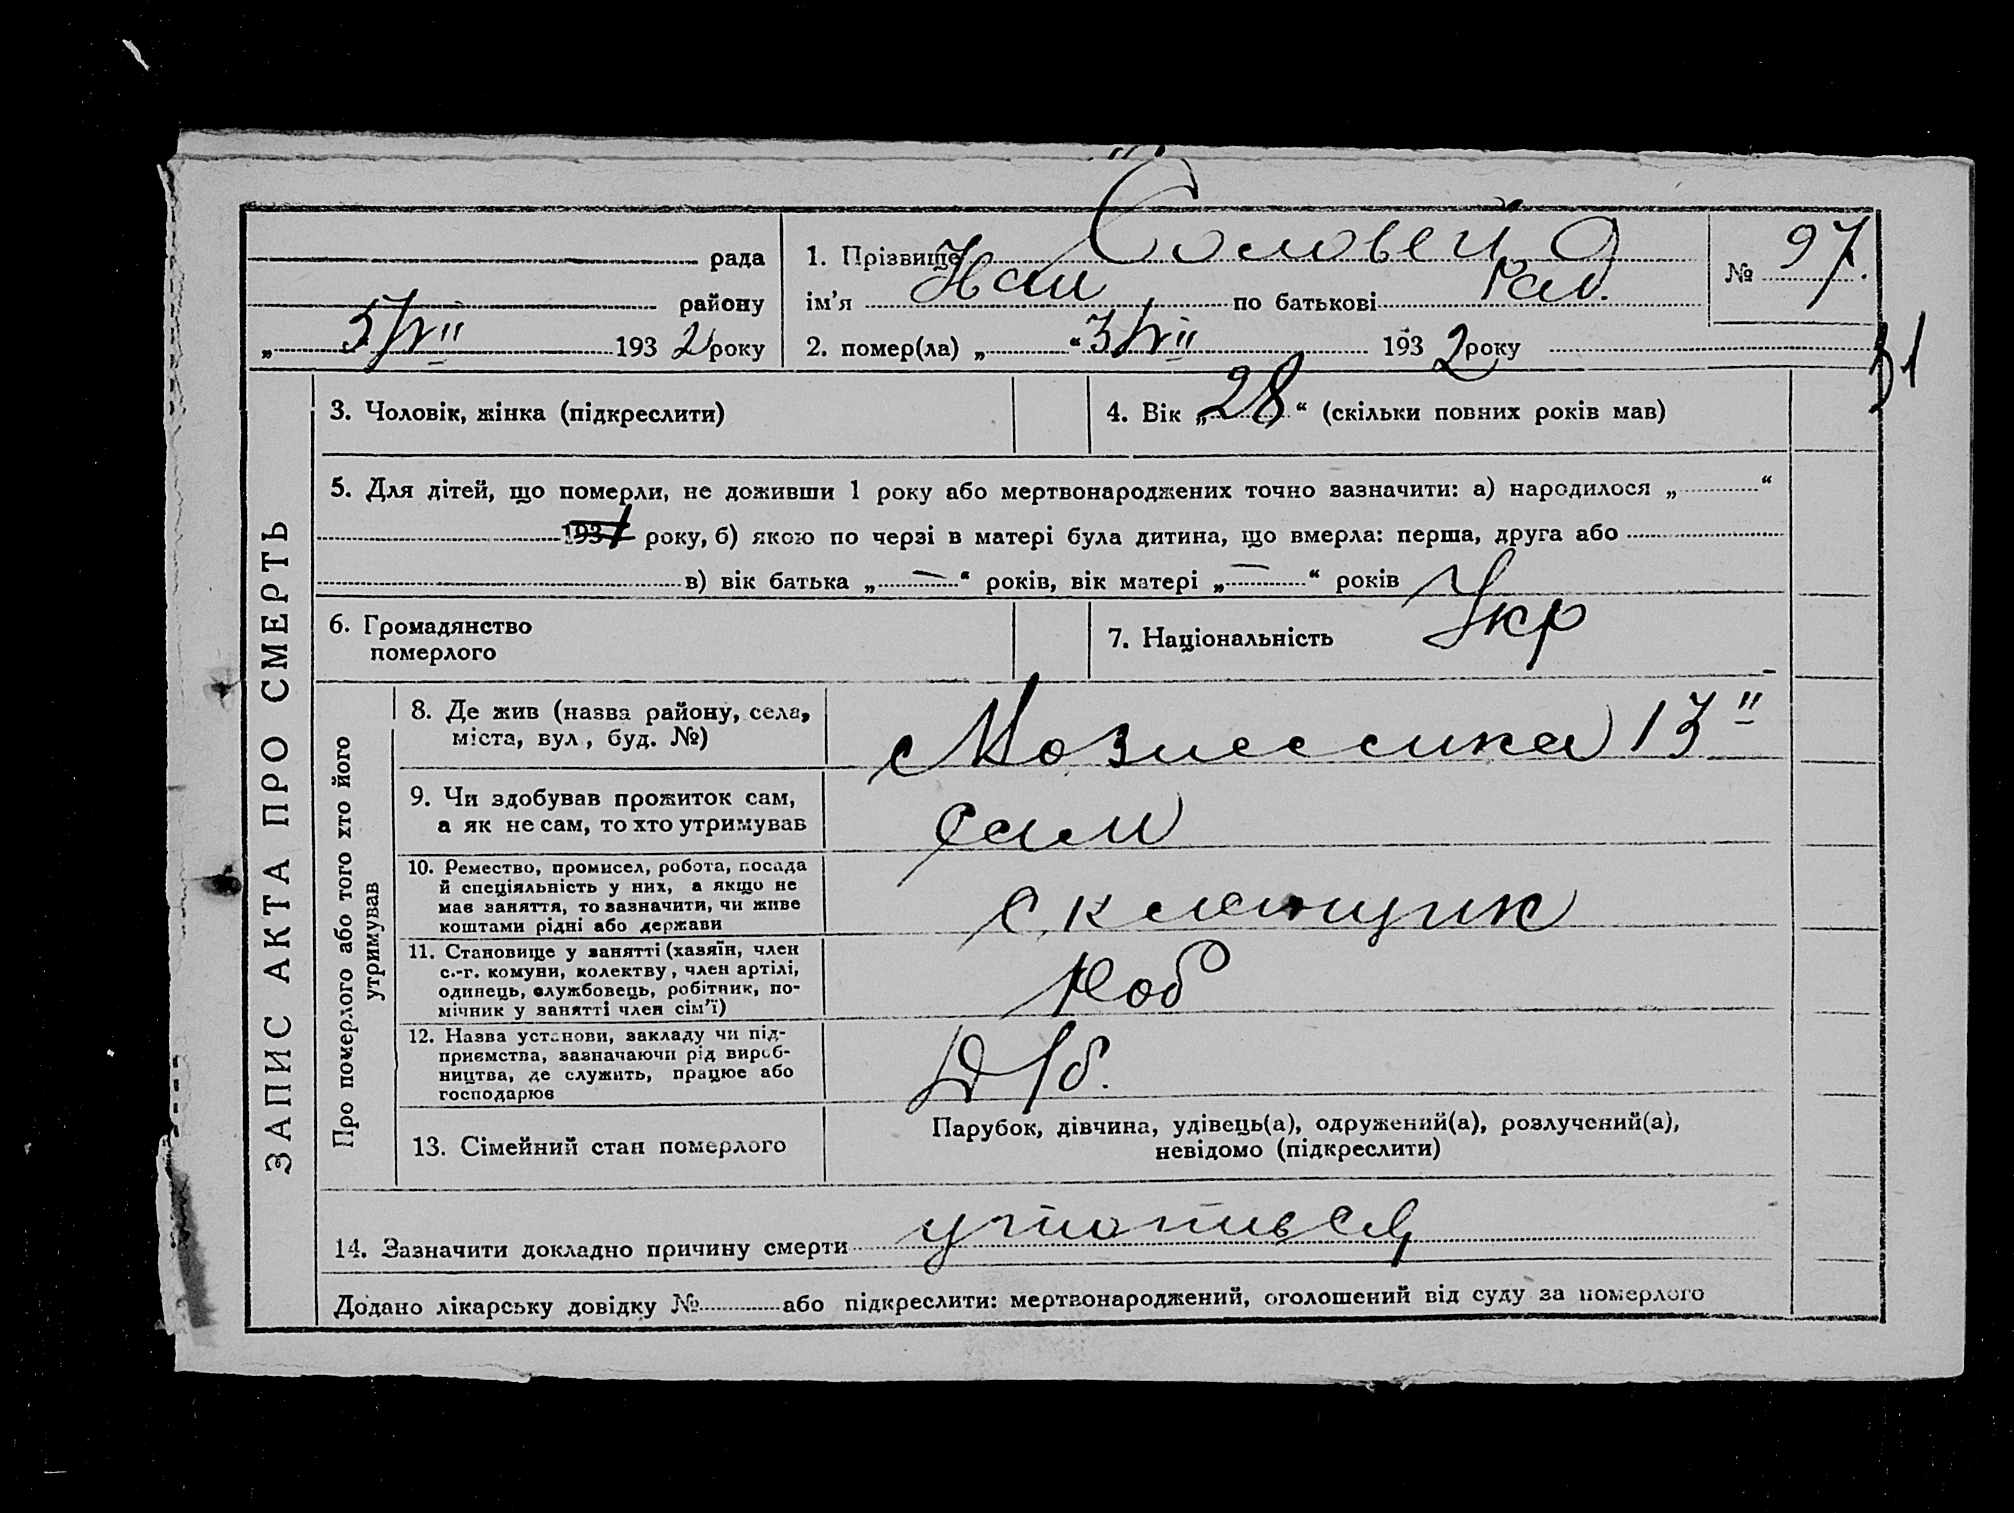 Соловей
рада
1. Прізвище
№ 97.
району
ім’я
по батькові
„ 5/VII 1932 року
2. помер(ла) „ “ 3/VII 1932 року
31
ЗАПИС АКТА ПРО СМЕРТЬ
3. Чоловік, жінка (підкреслити)
4. Вік „ 28 “ (скільки повних років мав)
5. Для дітей, що померли, не доживши 1 року або мертвонароджених точно зазначити: а) народилося „ “
1931 року, б) якою по черзі в матері була дитина, що вмерла: перша, друга або
в) вік батька „ — “ років, вік матері „ — “ років
6. Громадянство
померлого
7. Національність Укр
Про померлого або того хто його
утримував
8. Де жив (назва району, села,
міста, вул., буд. №)
13
9. Чи здобував прожиток сам,
а як не сам, то хто утримував
Сам
10. Ремество, промисел, робота, посада
й спеціяльність у них, а якщо не
має заняття, то зазначити, чи живе
коштами рідні або держави
11. Становище у занятті (хазяїн, член
с.-г. комуни, колектву, член артілі,
одинець, службовець, робітник, по-
мічник у занятті член сім’ї)
Роб
12. Назва установи, закладу чи під-
приємства, зазначаючи рід вироб-
ництва, де служить, працює або
господарює
13. Сімейний стан померлого
Парубок, дівчина, удівець(а), одружений(а), розлучений(а),
невідомо (підкреслити)
14. Зазначити докладно причину смерти утопився
Додано лікарську довідку № або підкреслити: мертвонароджений, оголошений від суду за померлого